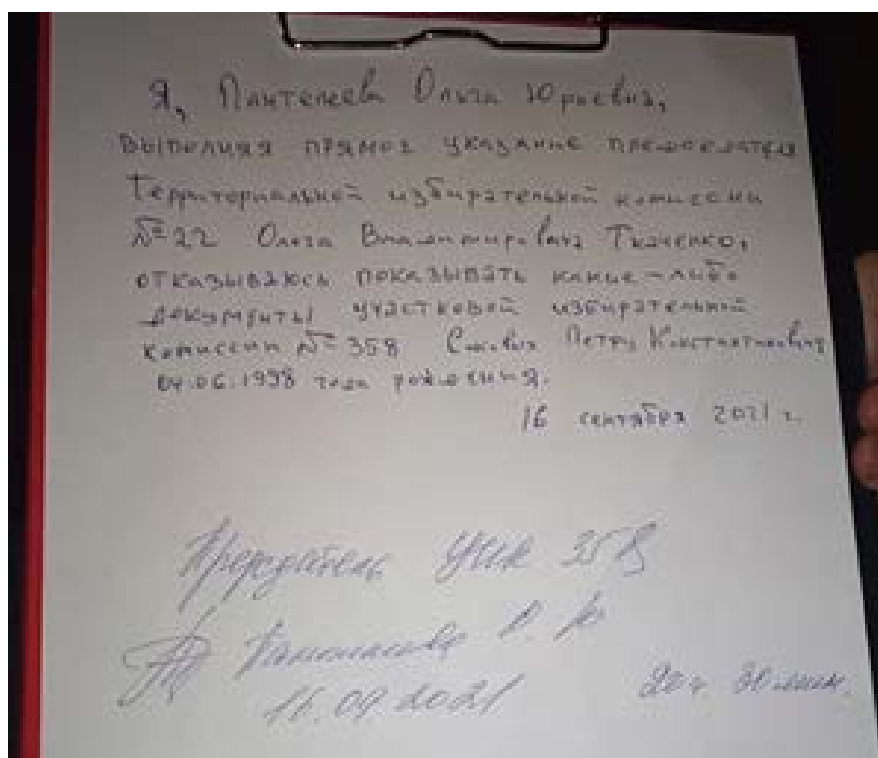 Я, Пантелеева Ольга Юрьевна,
выполняя прямое указание председателя
Территориальной избирательной комиссии
№22 Олега Владимировича Ткаченко,
отказываюсь показывать какие-либо
документы участковой избирательной
комиссии №358 Петру Константиновичу
04.06.1998 года рождения.
16 сентября 2021 г.
Председатель УИК 358
Пантелеева О. Ю
16.09.2021
20ч 30мин.